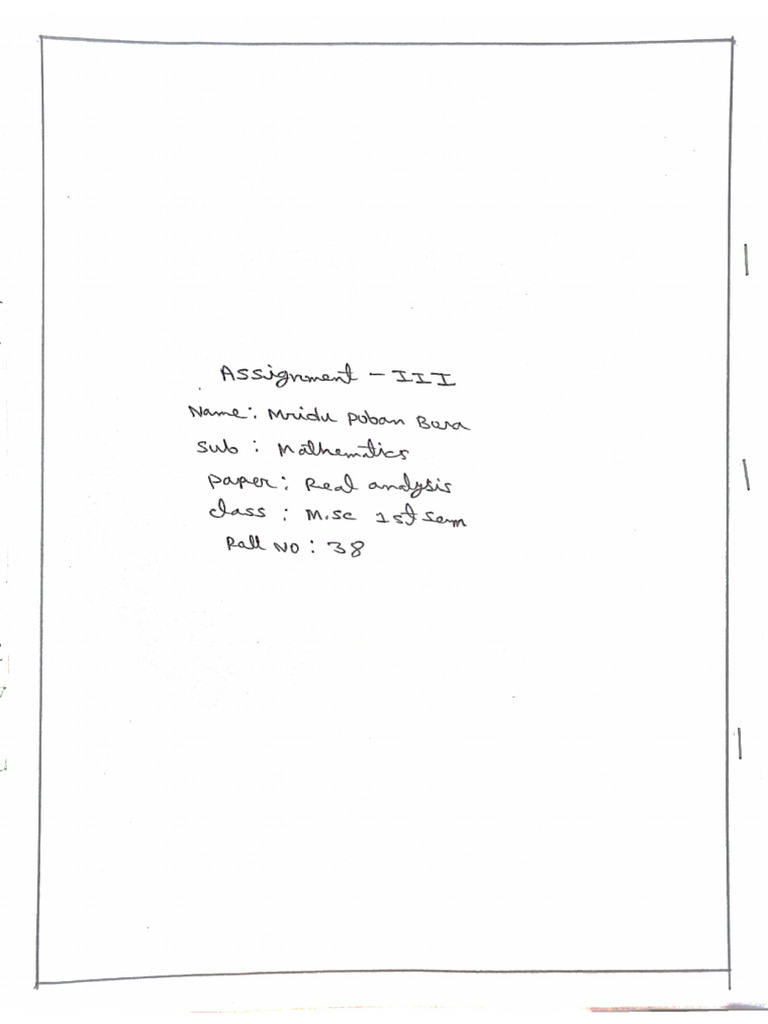 Assignment - III
Name: Mridu Poban Bora
Sub : Mathematics
Paper: Real analysis
class : M.sc 1st Sem
Roll NO : 38